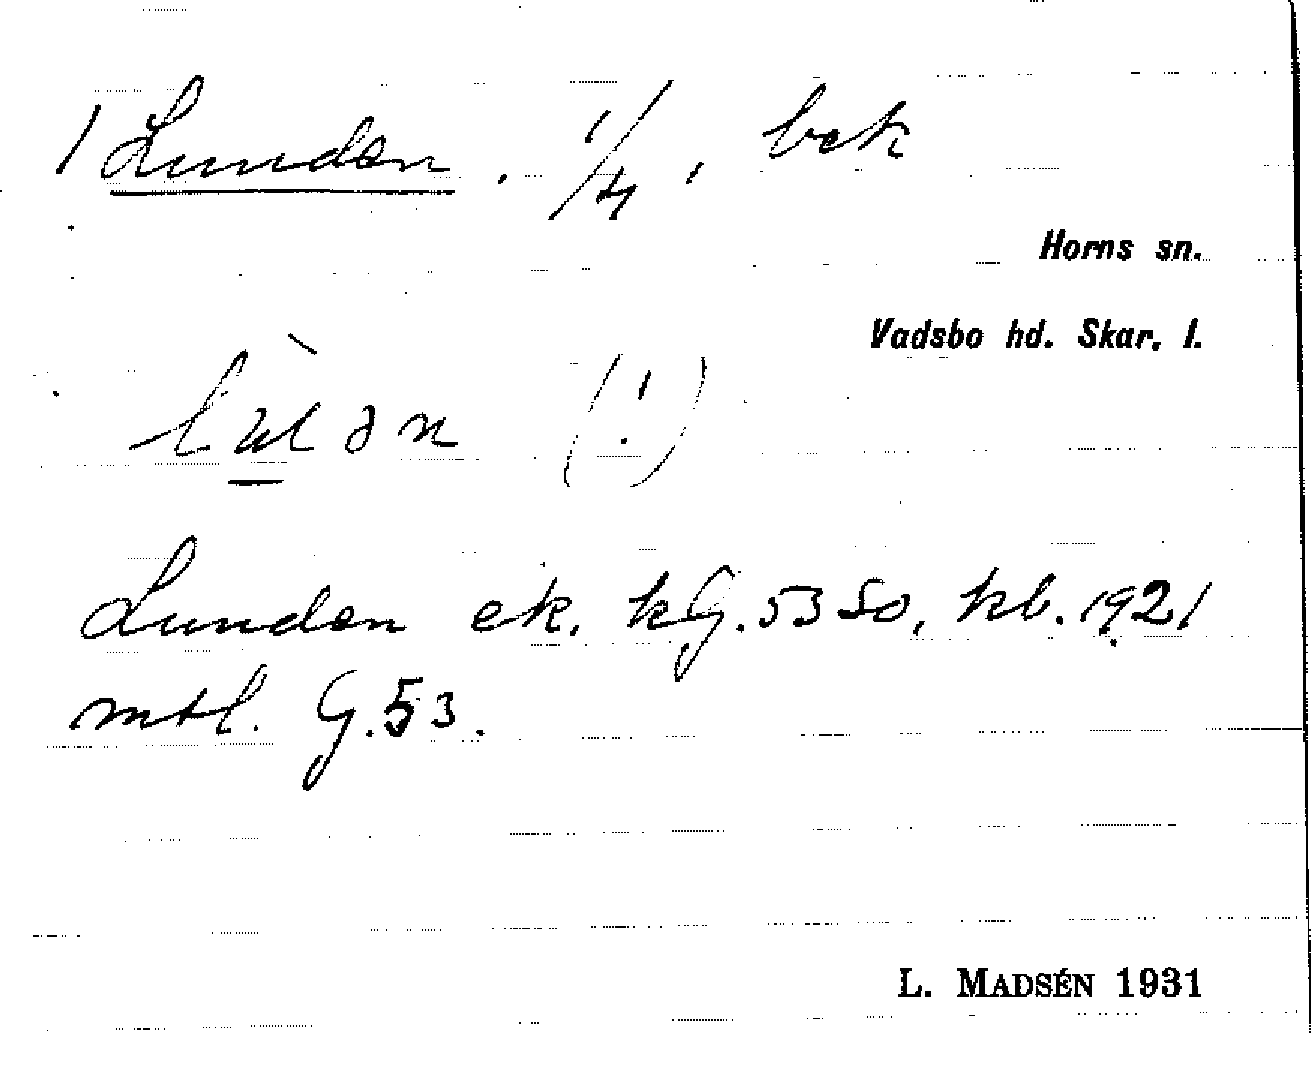 1 Lunden. 1/4, bek
Horns sn.
Vadsbo hd. Skar. l.
(!)
Lunden ek. kG. 53 So, kb. 1921
mtl. G. 53.
L. MADSÉN 1931